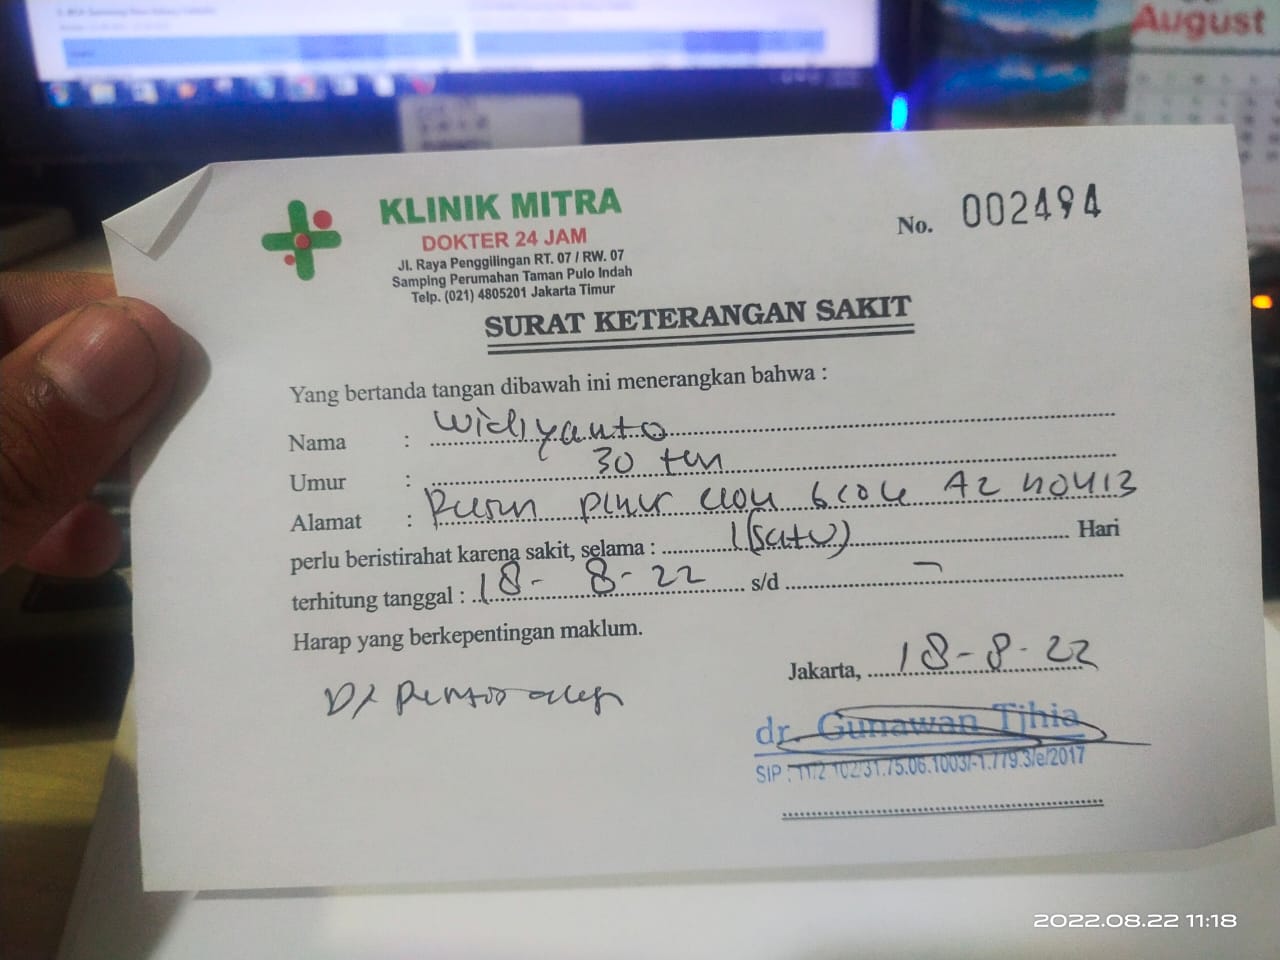 August
KLINIK MITRA
DOKTER 24 JAM
Jl. Raya Penggilingan RT. 07 / RW. 07
Samping Perumahan Taman Pulo Indah
Telp. (021) 4805201 Jakarta Timur
No. 002494
SURAT KETERANGAN SAKIT
Yang bertanda tangan dibawah ini menerangkan bahwa :
Nama : Widiyanto
Umur : 30
Alamat :
perlu beristirahat karena sakit, selama : 1 (satu) Hari
terhitung tanggal : 18 - 8 - 22 s/d -
Harap yang berkepentingan maklum.
Jakarta, 18 - 8 - 22
dr. Gunawan Tjhia
2022.08.22 11:18